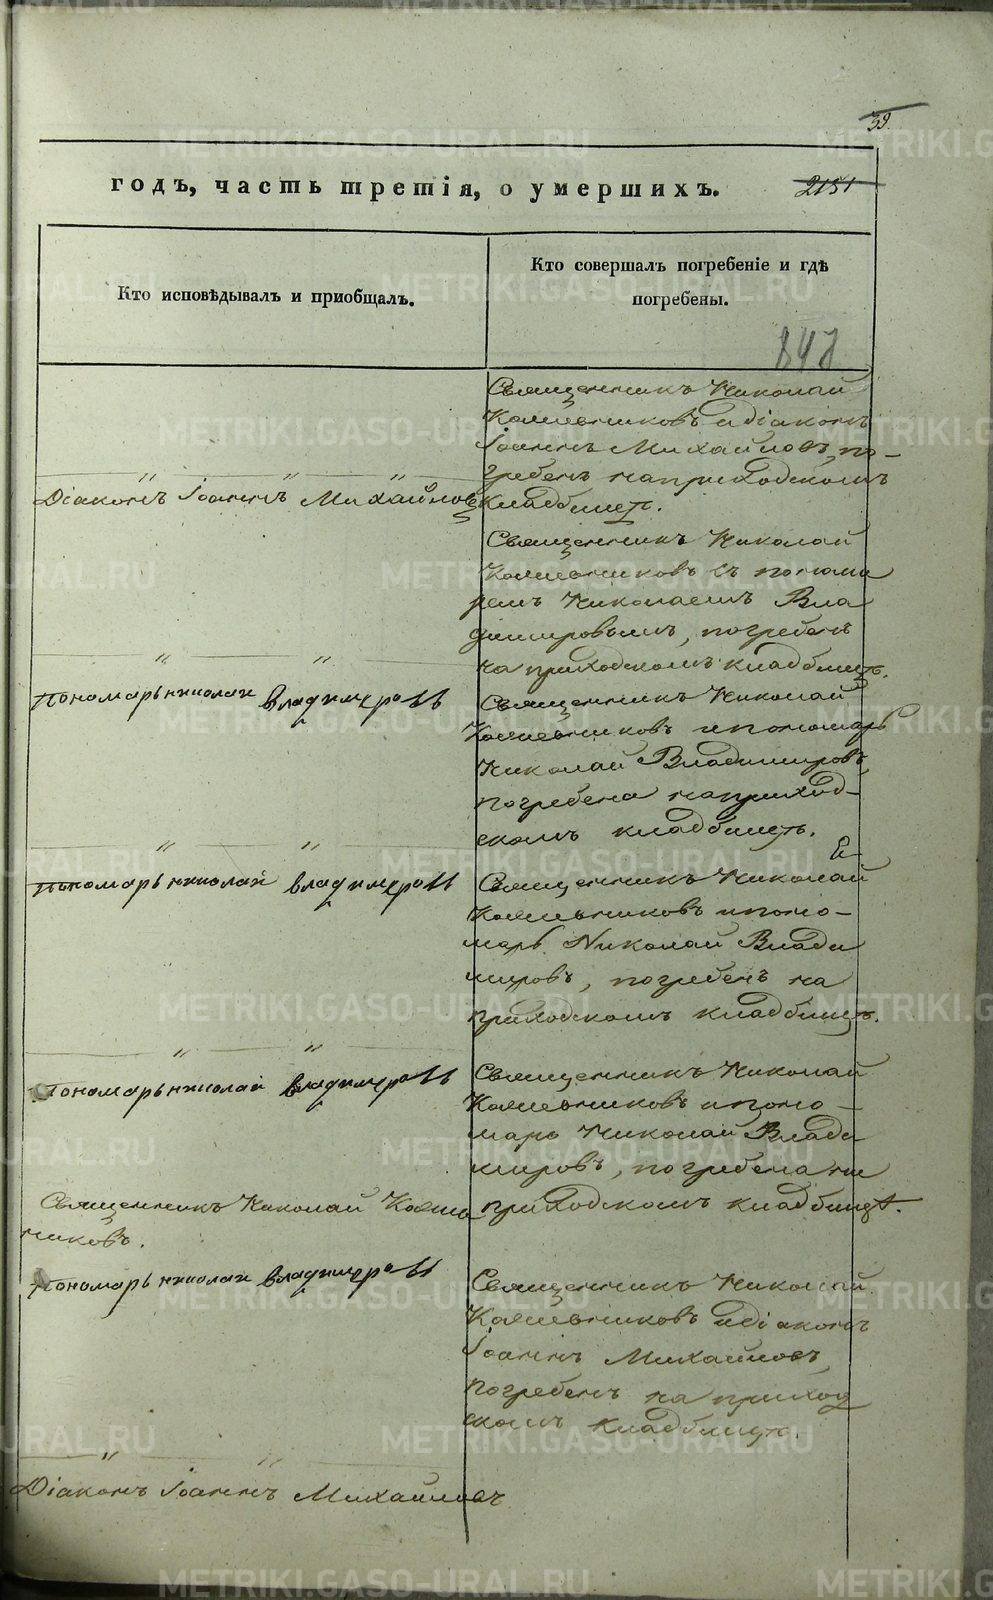 39.
годъ, часть третія, о умершихъ.
2151
Кто исповѣдывалъ и приобщалъ.
Кто совершалъ погребеніе и гдѣ
погребены.
847
Священникъ Николай
и діаконъ
Іоаннъ Михайловъ, по-
гребенъ на приходскомъ
кладбищѣ.
" " "
Діаконъ Іоаннъ Михайловъ
Священникъ Николай
съ понома
ремъ Николаемъ Вла
димировымъ, погребенъ
на приходскомъ кладбищѣ.
" "
Пономарь николай владимеровъ
Священникъ Николай
и пономарь
Николай Владимировъ,
погребена на приход-
скомъ кладбищѣ.
" "
Пономарь николай владимеровъ
Священникъ Николай
и поно-
марь Николай Влади
мировъ, погребенъ на
приходскомъ кладбищѣ.
" "
Пономарь николай владимеровъ
Священникъ Николай
и поно-
марь Николай Влади
мировъ, погребена на
приходскомъ кладбищѣ.
Священникъ Николай
никовъ.
Пономарь николай владимеровъ
Священникъ Николай
и діаконъ
Іоаннъ Михайловъ,
погребенъ на приход
скомъ кладбищѣ.
" "
Діаконъ Іоаннъ Михайловъ
METRIKI.GASO-URAL.RU